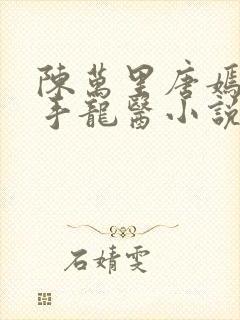 陳萬里唐嫣
手龍醫小說
石婧雯